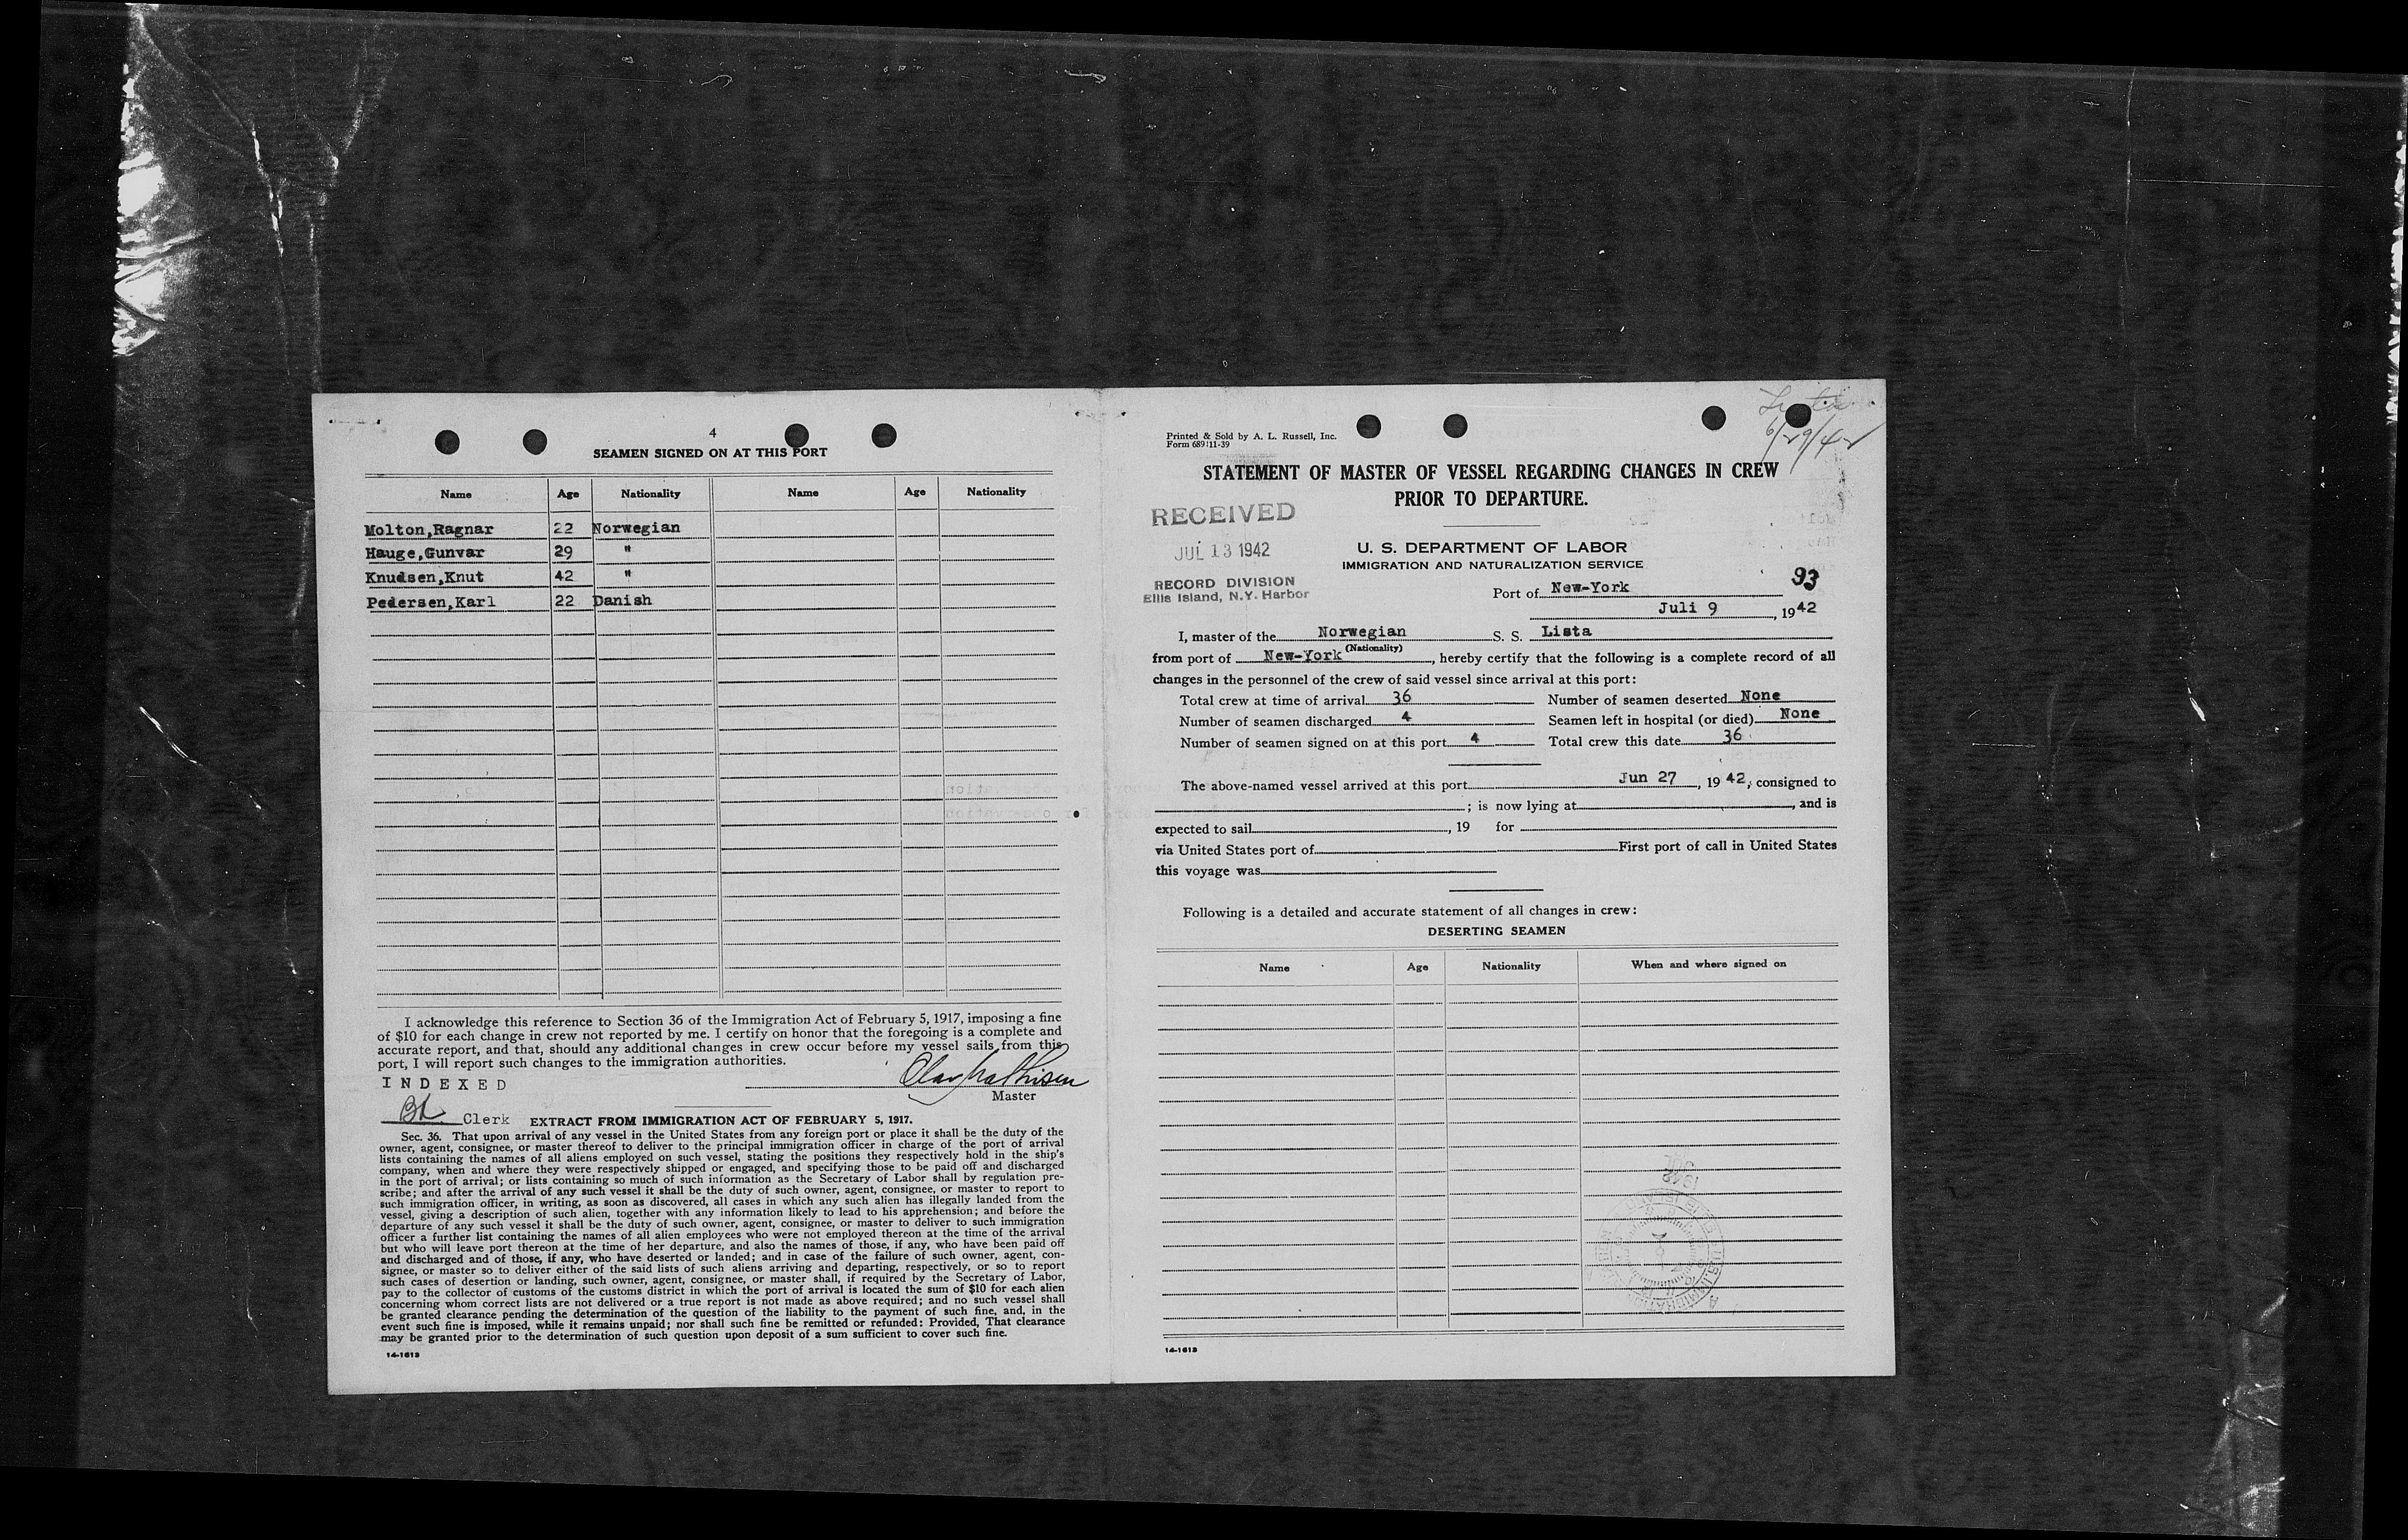 4
SEAMEN SIGNED ON AT THIS PORT
Name Age Nationality Name Age Nationality
Molton,Ragnar 22 Norwegian
Hauge,Gunvar 29 "
Knudsen,Knut 42 "
Pedersen,Karl 22 Danish
I acknowledge this reference to Section 36 of the Immigration Act of February 5, 1917, imposing a fine
of $10 for each change in crew not reported by me. I certify on honor that the foregoing is a complete and
accurate report, and that, should any additional changes in crew occur before my vessel sails from this
port, I will report such changes to the immigration authorities.
INDEXED
Olav Mathisen
Master
Clerk EXTRACT FROM IMMIGRATION ACT OF FEBRUARY 5, 1917.
Sec. 36. That upon arrival of any vessel in the United States from any foreign port or place it shall be the duty of the
owner, agent, consignee, or master thereof to deliver to the principal immigration officer in charge of the port of arrival
lists containing the names of all aliens employed on such vessel, stating the positions they respectively hold in the ship's
company, when and where they were respectively shipped or engaged, and specifying those to be paid off and discharged
in the port of arrival; or lists containing so much of such information as the Secretary of Labor shall by regulation pre-
scribe; and after the arrival of any such vessel it shall be the duty of such owner, agent, consignee, or master to report to
such immigration officer, in writing, as soon as discovered, all cases in which any such alien has illegally landed from the
vessel, giving a description of such alien, together with any information likely to lead to his apprehension; and before the
departure of any such vessel it shall be the duty of such owner, agent, consignee, or master to deliver to such immigration
officer a further list containing the names of all alien employees who were not employed thereon at the time of the arrival
but who will leave port thereon at the time of her departure, and also the names of those, if any, who have been paid off
and discharged and of those, if any, who have deserted or landed; and in case of the failure of such owner, agent, con-
signee, or master so to deliver either of the said lists of such aliens arriving and departing, respectively, or so to report
such cases of desertion or landing, such owner, agent, consignee, or master shall, if required by the Secretary of Labor,
pay to the collector of customs of the customs district in which the port of arrival is located the sum of $10 for each alien
concerning whom correct lists are not delivered or a true report is not made as above required; and no such vessel shall
be granted clearance pending the determination of the question of the liability to the payment of such fine, and, in the
event such fine is imposed, while it remains unpaid; nor shall such fine be remitted or refunded: Provided, That clearance
may be granted prior to the determination of such question upon deposit of a sum sufficient to cover such fine.
14-1613
Lista
6/29/42
Printed & Sold by A. L. Russell, Inc.
Form 689:11-39
STATEMENT OF MASTER OF VESSEL REGARDING CHANGES IN CREW
PRIOR TO DEPARTURE.
RECEIVED
JUL 13 1942
RECORD DIVISION
Ellis Island, N.Y. Harbor
U. S. DEPARTMENT OF LABOR
IMMIGRATION AND NATURALIZATION SERVICE
93
Port of New-York
Juli 9, 1942
I, master of the Norwegian S. S. Lista
(Nationality)
from port of New-York, hereby certify that the following is a complete record of all
changes in the personnel of the crew of said vessel since arrival at this port:
Total crew at time of arrival 36 Number of seamen deserted None
Number of seamen discharged 4 Seamen left in hospital (or died) None
Number of seamen signed on at this port 4 Total crew this date 36
The above-named vessel arrived at this port Jun 27, 1942, consigned to
; is now lying at , and is
expected to sail , 19 for
via United States port of First port of call in United States
this voyage was
Following is a detailed and accurate statement of all changes in crew:
DESERTING SEAMEN
Name Age Nationality When and where signed on
14-1613